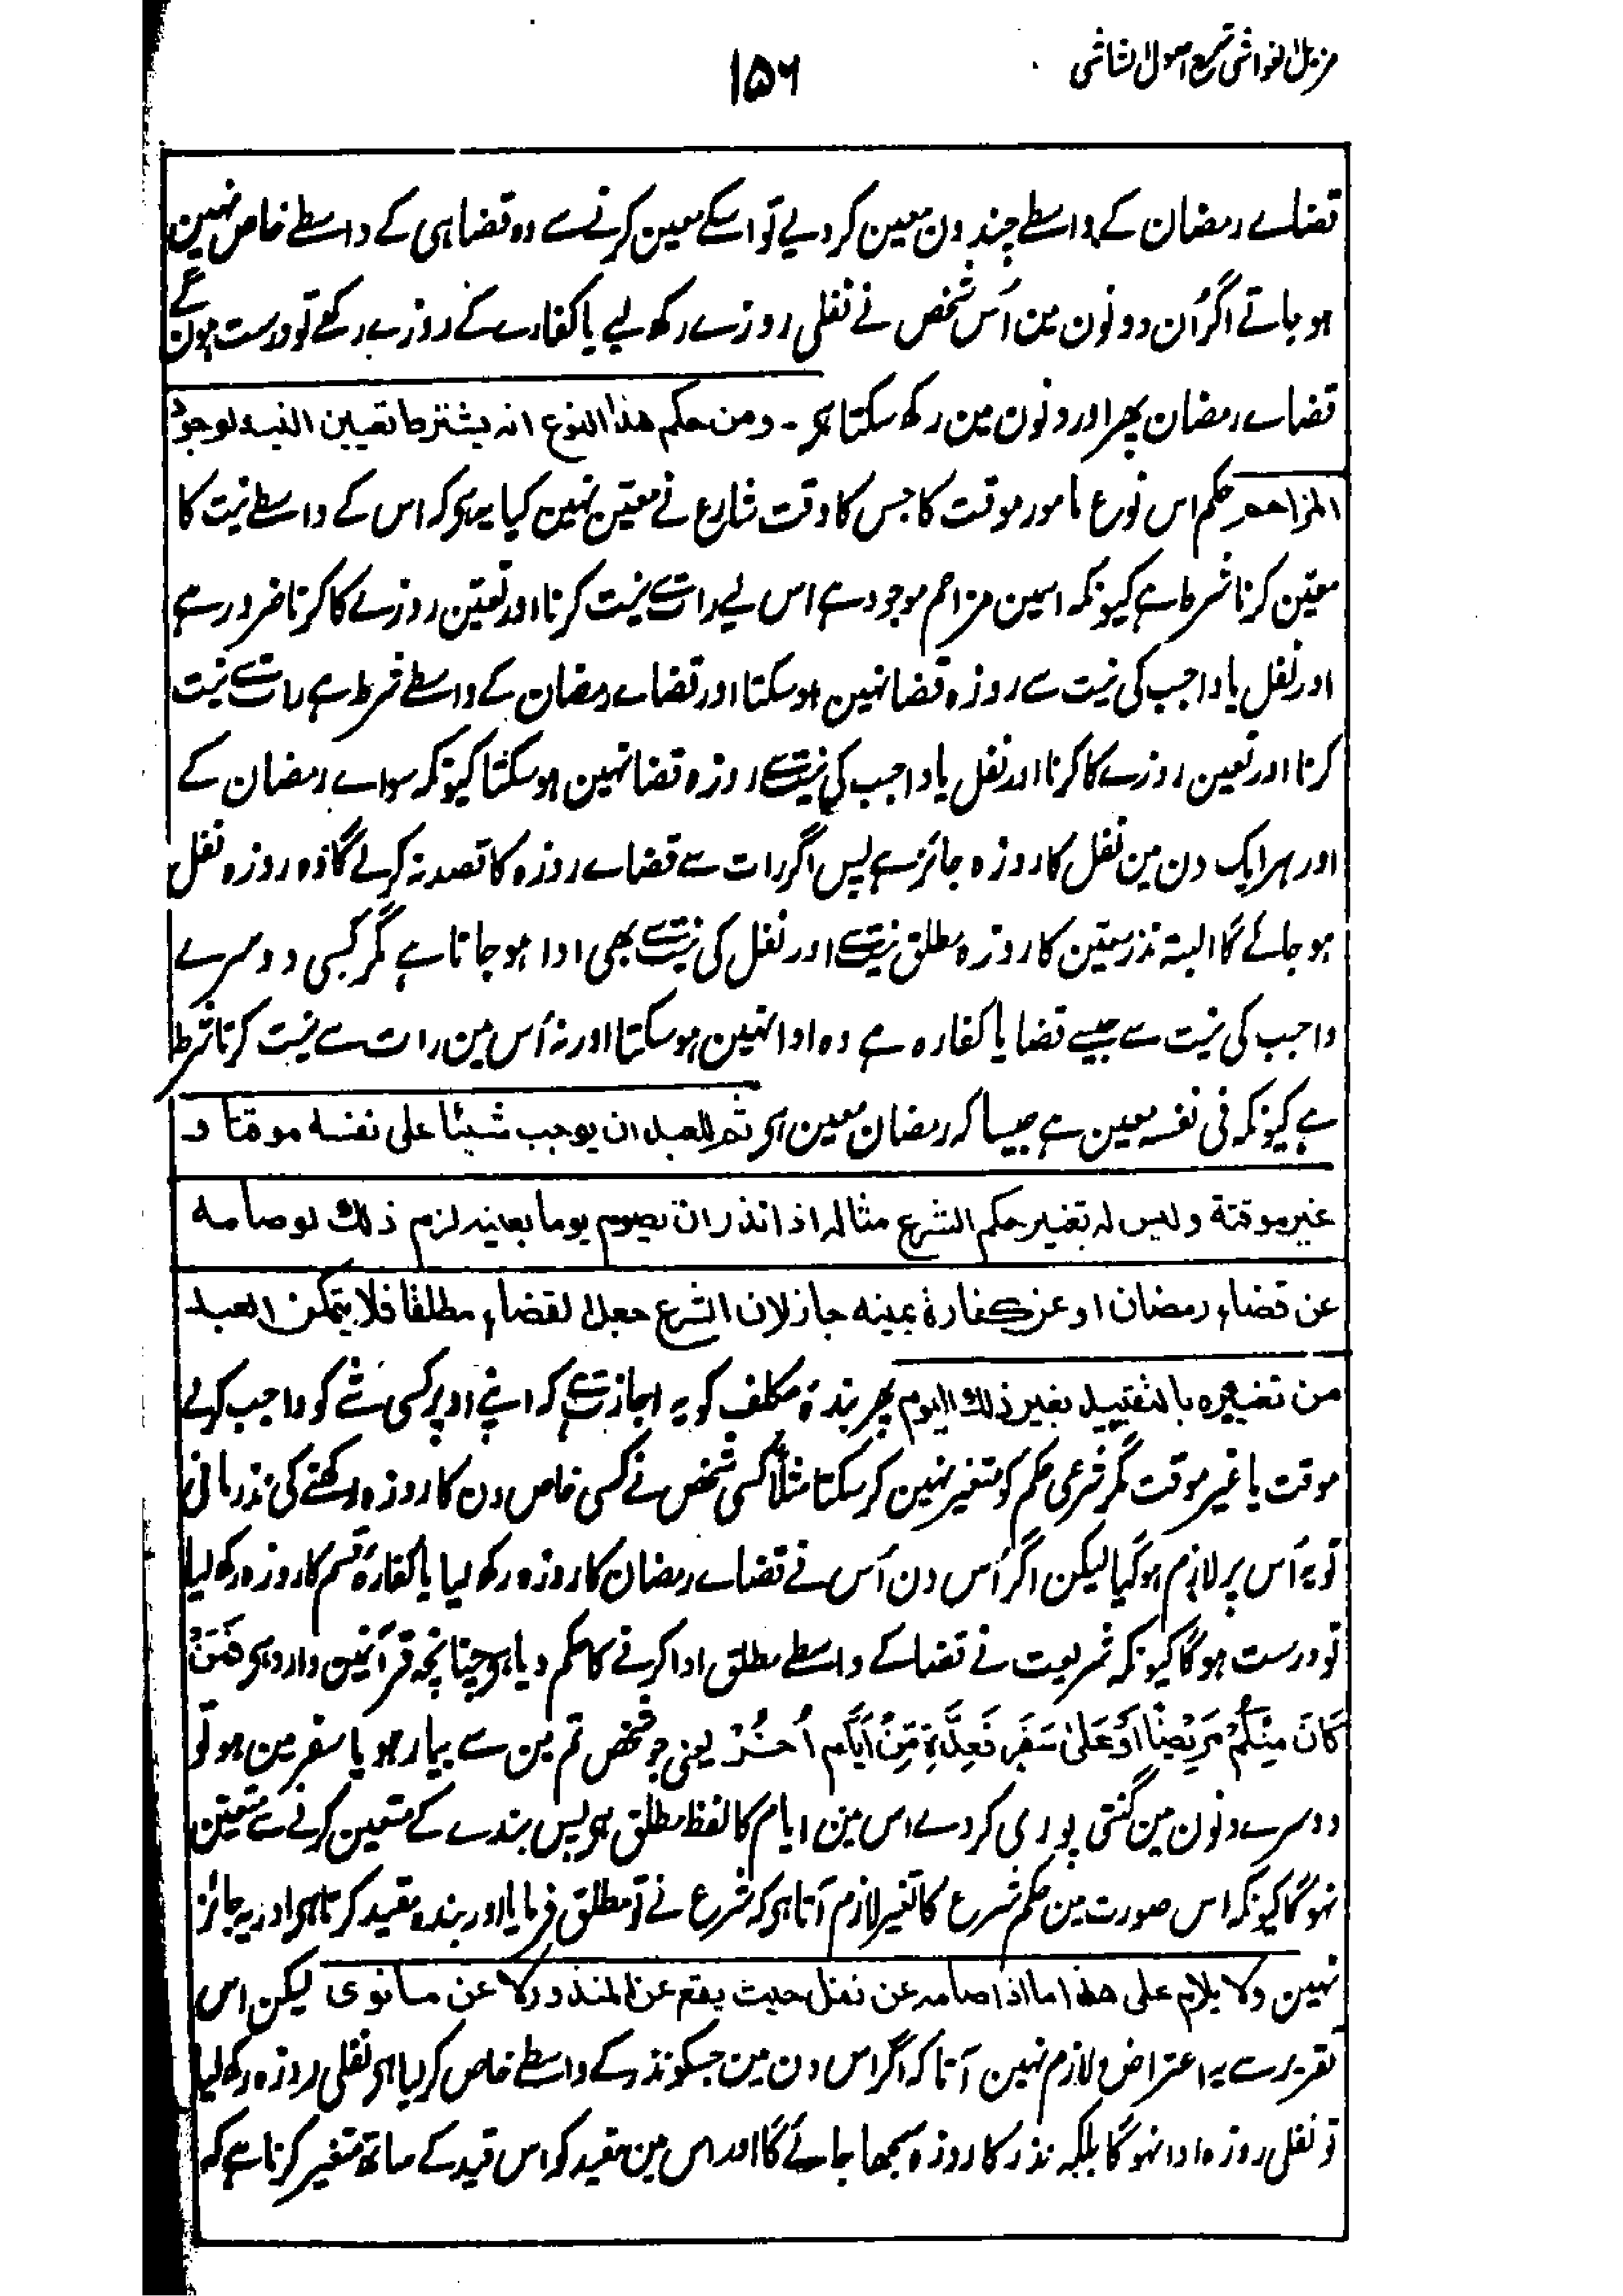 مزیل الغواشی شرح اصول الشاشی
۱۵۶
قضاے رمضان کے واسطے چند دن معین کر دیے تو اسکے معین کرنے سے وہ قضا ہی کے واسطے خاص نہین
ہو جاتے اگر اُن دونون مین اُس شخص نے نفلی روزے رکھ لیے یا کفارے کے روزے رکھے تو درست ہون گے
قضاے رمضان پھر اور دونون مین رکھ سکتا ہی۔ ومن حکم ھذا النوع انہ یشترط تعیین النیۃ لوجود
المزاحم حکم اس نوع مامور موقت کا جس کا وقت شارع نے معیّن نہین کیا یہ ہی کہ اس کے واسطے نیت کا
معیّن کرنا شرط ہے کیونکہ اسمین مزاحم موجود ہے اس لیے رات سے نیت کرنا اور تعیّن روزے کا کرنا ضرور ہے
اور نفل یا واجب کی نیت سے روزہ قضا نہین ہو سکتا اور قضاے رمضان کے واسطے شرط ہے رات سے نیت
کرنا اور تعین روزے کا کرنا اور نفل یا واجب کی نیت سے روزہ قضا نہین ہو سکتا کیونکہ سواے رمضان کے
اور ہر ایک دن مین نفل کا روزہ جائز ہے پس اگر رات سے قضاے روزہ کا قصد نہ کرلے گا وہ روزہ نفل
ہو جائے گا البتہ نذر معیّن کا روزہ مطلق نیت سے اور نفل کی نیت سے بھی ادا ہو جاتا ہے مگر کسی دوسرے
واجب کی نیت سے جیسے قضا یا کفارہ ہے وہ ادا نہین ہو سکتا اور نہ اُس مین رات سے نیت کرنا شرط
ہے کیونکہ فی نفسہ معین ہے جیسا کہ رمضان معین ہی ثم للعبد ان یوجب شیئا علی نفسہ موقتا و
غیر موقتۃ ولیس لہ تغییر حکم الشرع مثالہ اذا نذر ان یصوم یوما بعینہ لزم ذلک لو صامہ
عن قضاء رمضان او عن کفارۃ یمینہ جاز لان الشرع جعل القضاء مطلقا فلا یتمکن العبد
من تغییرہ بالتقیید بغیر ذلک الیوم پھر بندۂ مکلف کو یہ اجازت ہے کہ اپنے اوپر کسی شے کو واجب کرلے
موقت یا غیر موقت مگر شرعی حکم کو متغیر نہین کر سکتا مثلاً کسی شخص نے کسی خاص دن کا روزہ رکھنے کی نذر مانی
تو یہ اُس پر لازم ہو گیا لیکن اگر اُس دن اُس نے قضاے رمضان کا روزہ رکھ لیا یا کفارۂ قسم کا روزہ رکھ لیا
تو درست ہوگا کیونکہ شریعت نے قضا کے واسطے مطلق ادا کرنے کا حکم دیا ہی چنانچہ قرآنین وارد ہی فَمَنْ
کَانَ مِنْکُمْ مَرِیْضًا اَوْ عَلیٰ سَفَرٍ فَعِدَّۃٌ مِّنْ اَیَّامٍ اُخَرَ یعنی جو شخص تم مین سے بیمار ہو یا سفر مین ہو تو
دوسرے دنون مین گنتی پوری کردے اس مین ایام کا لفظ مطلق ہی پس بندے کے متعین کرنے سے متعیّن
نہوگا کیونکہ اس صورت مین حکم شرع کا تغیر لازم آتا ہی کہ شرع نے تو مطلق فرمایا اور بندہ مقید کرتا ہی اور یہ جائز
نہین ولا یلزم علی ھذا ما اذا صامہ عن نفل حیث یقع عن المنذور لا عن ما نوی لیکن اس
تقریر سے یہ اعتراض لازم نہین آتا کہ اگر اس دن مین جسکو نذر کے واسطے خاص کرلیا ہی نفلی روزہ رکھ لیا
تو نفل روزہ ادا نہوگا بلکہ نذر کا روزہ سمجھا جائے گا اور اس مین مقید کو اس قید کے ساتھ متغیر کرنا ہے کہ